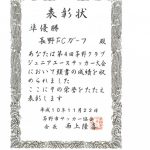 表彰状
準優勝
長野FCガーフ 殿
あなたは第4回茅野クラブ
ジュニアユースサッカー大会
において頭書の成績を収
められました
ここに中の栄誉をたたえ
表彰します
平成10年11月22日
茅野市サッカー協会
会長 両上隆喜